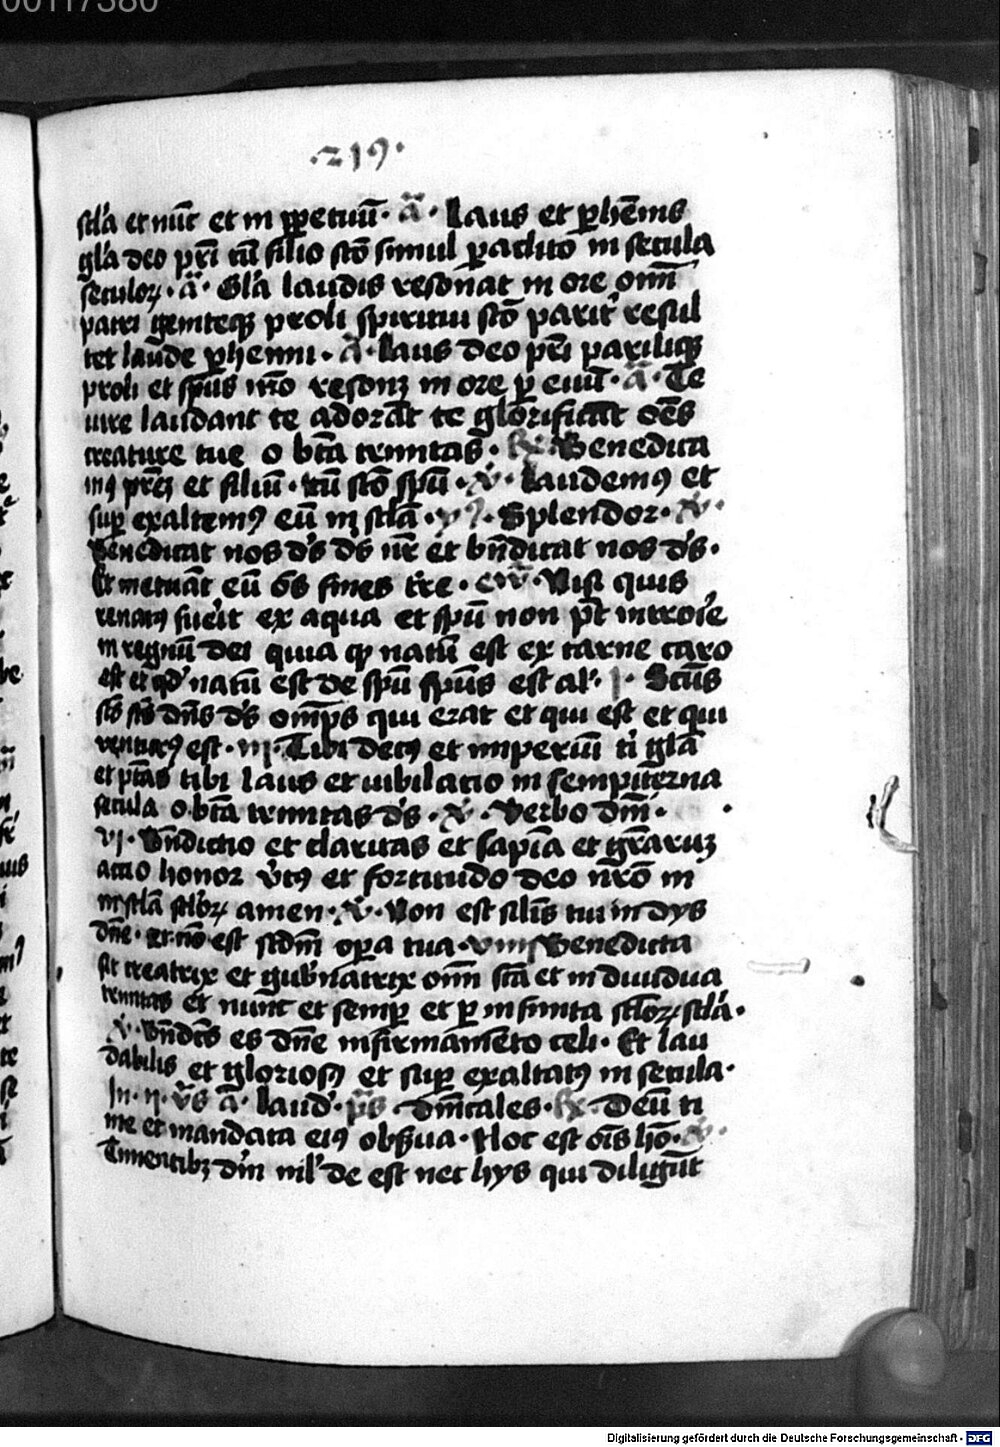 00117380
·219·
scła et nūc et in ꝑpetuū · ā · Laus et ꝑhēnis
gła deo pr̄i cū filio sctō simul paclito in secula
seculoꝝ · ā · Gła laudis resonat in ore om̄
patri geniteqꝫ proli spiritui sctō parit᷑ resul
tet laude ꝑhenni · ā · Laus deo pr̄i pariliqꝫ
proli et sp̄us nr̄o resonꝫ in ore ꝑ euū · ā · Te
iure laudant te adorāt te glorificāt oēs
creature tue o bt̄a trinitas · ℟ · Benedica
mꝰ pr̄eꝫ et filiū · cū sctō sp̄u · ℣ · Laudemꝰ et
suꝑ exaltemꝰ eū in scła · Splendor · ℣ ·
Benedicat nos d̄s d̄s nr̄ et bn̄dicat nos d̄s ·
Et metuāt eū ōs fines tr̄e · ew̄ · Nisi quis
renatꝰ fuerit ex aqua et sp̄u non pt̄ introire
in regnū dei quia qꝫ natū est ex carne caro
est et qd̕ natū est de sp̄u sp̄us est al̕ · j · Sctūs
sc̄s sc̄s dn̄s d̄s omp̄s qui erat et qui est et qui
venturꝰ est · iij · Tibi decꝰ et imperiū t̄i gła
et ptās tibi laus et iubilatio in sempiterna
secula o bt̄a trinitas d̄s · ℣ · Verbo dn̄i ·
vj · Bn̄dictio et claritas et sapīa et gr̄aruꝫ
actio honor v̄tꝰ et fortitudo deo nr̄o in
in scła scłoꝝ amen · ℣ · Non est sil̄is tui in dys
dn̄e · et nō est scdm̄ oꝑa tua · viiij Benedicta
sit creatrix et gub̄natrix om̄ scā et indiuidua
trinitas et nūc et semꝑ et ꝑ infinita scłoꝝ scła ·
℣ · Bn̄dcūs es dn̄e in firmamēto celi · Et lau
dabilis et gloriosꝰ et suꝑ exaltatꝰ in secula ·
In · ij · v̄s ā · laud̕ · p̄s · dn̄icales · ℟ · Deū ti
me et mandata eiꝰ obẜua · Hoc est oīs hō · ℣ ·
Timentibꝫ dn̄m nil̕ de est nec hys qui diligūt
Digitalisierung gefördert durch die Deutsche Forschungsgemeinschaft · DFG